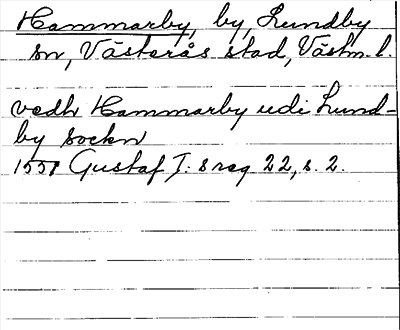 Hammarby, by, Lundby
sn, Västerås stad, Västm. l.
vedh Hammarby udi Lund-
by sockn
1551 Gustaf I:s reg 22, s. 2.